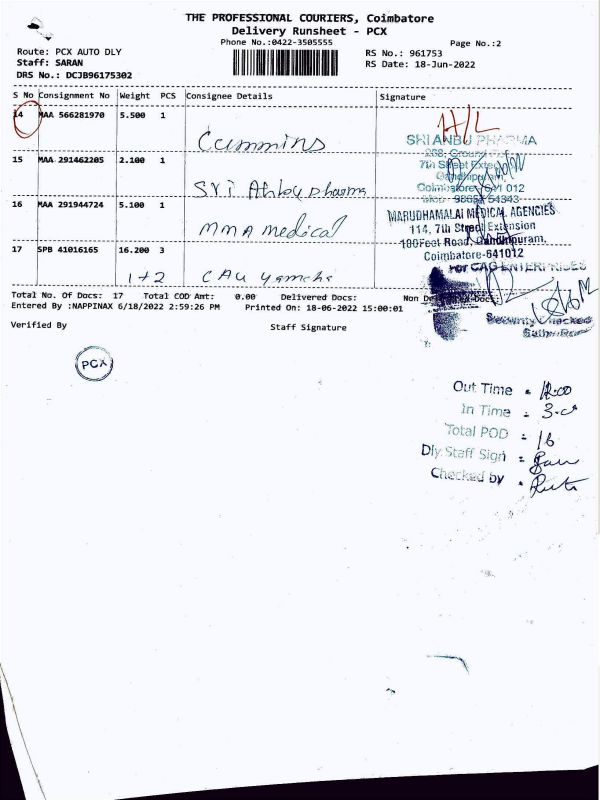 THE PROFESSIONAL COURIERS, Coimbatore
Delivery Runsheet - PCX
Phone No.:0422-3505555
Page No.:2
Route: PCX AUTO DLY
Staff: SARAN
DRS No.: DCJB96175302
RS No.: 961753
RS Date: 18-Jun-2022
S No Consignment No Weight PCS Consignee Details Signature
14 MAA 566281970 5.500 1
Cummins
H/L
SRI ANBU PHARMA
15 MAA 291462205 2.100 1
Coimbatore 641 012
Sri Anbu pharma
16 MAA 291944724 5.100 1
MARUDHAMALAI MEDICAL AGENCIES
MMA medical
114, 7th Street Extension
100Feet Road, Gandhipuram,
17 SPB 41016165 16.200 3
Coimbatore-641012
For CAG ENTERPRISES
1+2 CAG
Total No. Of Docs: 17 Total COD Amt: 0.00 Delivered Docs: Non Delivered Docs:
Entered By :NAPPINAX 6/18/2022 2:59:26 PM Printed On: 18-06-2022 15:00:01
Security Checked
Verified By Staff Signature
PCX
Out Time : 12.00
In Time :
Total POD : 16
Dly.Staff Sign :
Checked by :